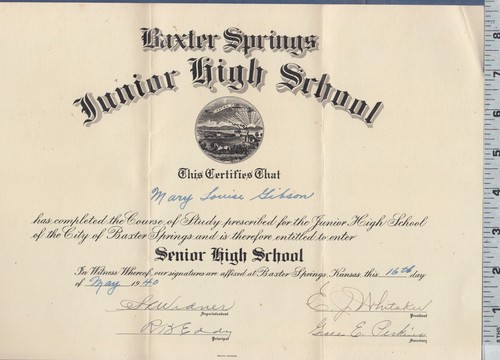 Baxter Springs
Junior High School
This Certifies That
Mary Louise Gibson
has completed the Course of Study prescribed for the Junior High School
of the City of Baxter Springs and is therefore entitled to enter
Senior High School
In Witness Whereof, our signatures are affixed at Baxter Springs, Kansas, this 16th day
of May 1940
E. J. Whitaker
Superintendent President
R H Eddy E. Perkins
Principal Secretary
8
7
6
5
4
3
2
1